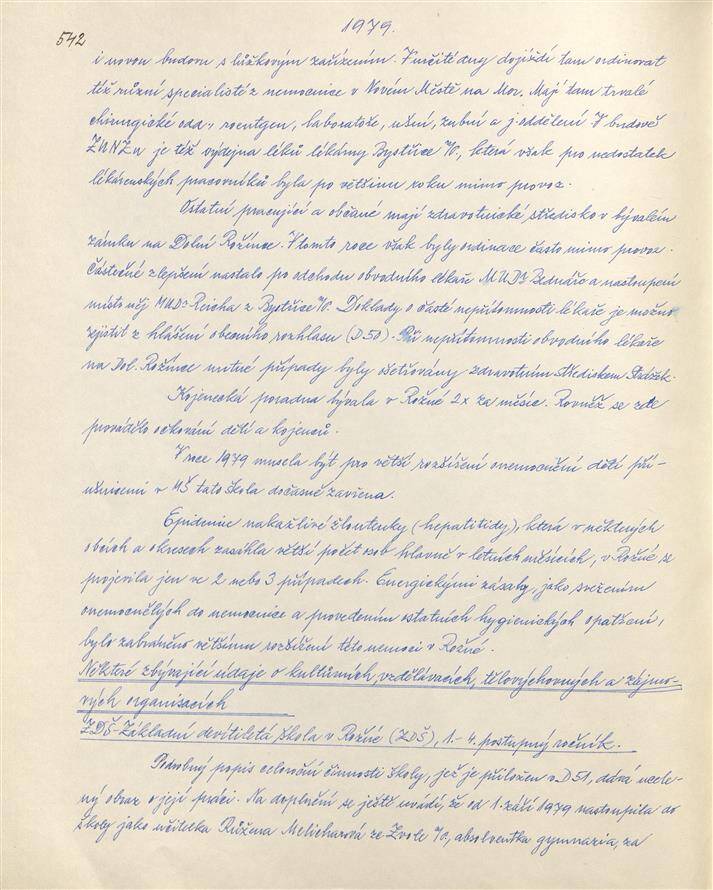 542
1979.
i novou budovu s lůžkovým zařízením. V určité dny dojíždí tam ordinovat
též různí specialisté z nemocnice v Novém Městě na Mor. Mají tam trvalé
chirurgické odd., roentgen, laboratoře, ušní, zubní a j. oddělení. V budově
ZUNZu je též výdejna léků lékárny Bystřice n/P., která však pro nedostatek
lékárenských pracovníků byla po většinu roku mimo provoz.
Ostatní pracující a občané mají zdravotnické středisko v bývalém
zámku na Dolní Rožínce. V tomto roce však byly ordinace často mimo provoz.
Částečné zlepšení nastalo po odchodu obvodního lékaře MUDr Bednáře a nastoupení
místo něj MUDr Reicha z Bystřice n/P. Doklady o časté nepřítomnosti lékaře je možno
zjistit z hlášení obecního rozhlasu (D 50). Při nepřítomnosti obvodního lékaře
na Dol. Rožínce nutné případy byly ošetřovány zdravotním střediskem Strážek.
Kojenecká poradna bývala v Rožné 2x za měsíc. Rovněž se zde
provádělo očkování dětí a kojenců.
V roce 1979 musela být pro větší rozšíření onemocnění dětí při-
ušnicemi v MŠ tato škola dočasně zavřena.
Epidemie nakažlivé žloutenky (hepatitidy), která v některých
obcích a okresech zasáhla větší počet osob hlavně v letních měsících, v Rožné se
projevila jen ve 2 nebo 3 případech. Energickými zásahy, jako svežením
onemocnělých do nemocnice a provedením ostatních hygienických opatření,
bylo zabráněno většímu rozšíření této nemoci v Rožné.
Některé zbývající údaje o kulturních, vzdělávacích, tělovýchovných a zájmo-
vých organisacích
ZDŠ-Základní devítiletá škola v Rožné (ZDŠ), 1.-4. postupný ročník.
Podrobný popis celoroční činnosti školy, jež je přiložen v D 51, dává ucele-
ný obraz o její práci. Na doplnění se ještě uvádí, že od 1. září 1979 nastoupila do
školy jako učitelka Růžena Melicharová ze Zvole n/P., absolventka gymnazia, za